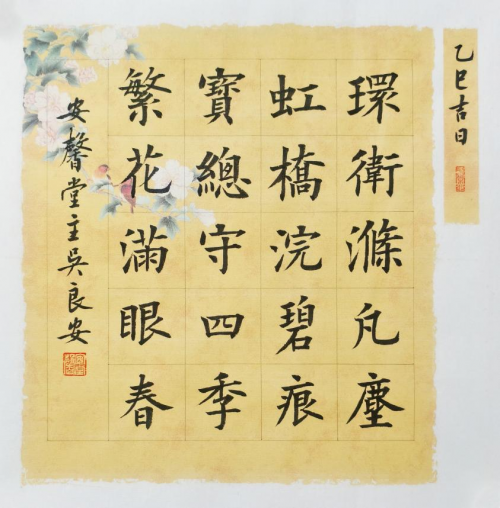 乙巳吉日
環衛滌凡塵
虹橋浣碧痕
寶總守四季
繁花滿眼春
安馨堂主吳良安